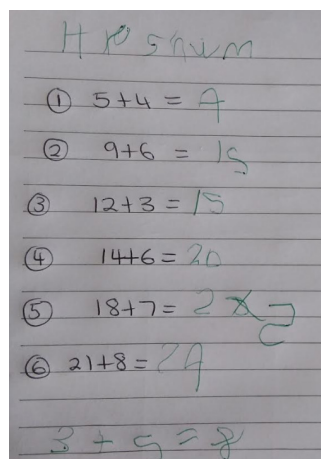 ① 5+4 = 9
② 9+6 = 15
③ 12+3 = 15
④ 14+6 = 20
⑤ 18+7 = 2
⑥ 21+8 = 29
3 + 5 = 8